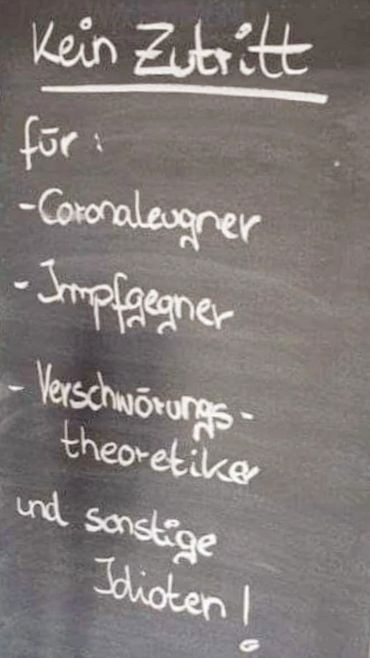 Kein Zutritt
für:
- Coronaleugner
- Impfgegner
- Verschwörungs-
theoretiker
und sonstige
Idioten!